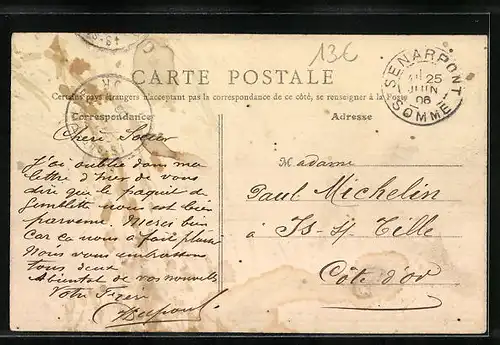 13€
CARTE POSTALE
Certains pays étrangers n'acceptant pas la correspondance de ce côté, se renseigner à la Poste
Correspondance
Adresse
SENARPONT
25
JUIN
06
SOMME
Chère Soeur
J'ai oublié dans ma
lettre d'hier de vous
dire que le paquet de
gimblette nous est bien
parvenu. Merci bien
Car ça nous a fait plaisir
Nous vous embrassons
tous deux
A bientôt de vos nouvelles
Votre Frère
Madame
Paul Michelin
à Is-s/-Tille
Côte d'or